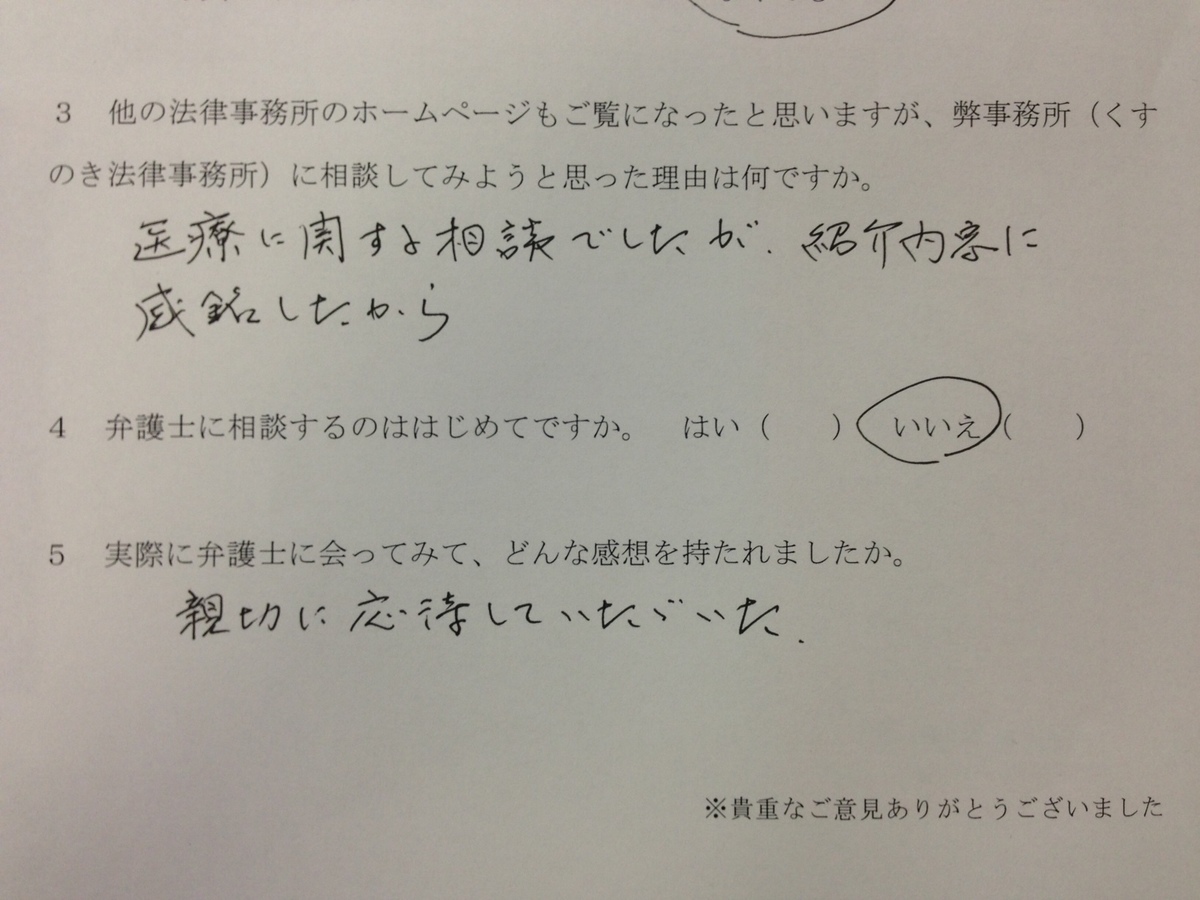 3 他の法律事務所のホームページもご覧になったと思いますが、弊事務所（くす
のき法律事務所）に相談してみようと思った理由は何ですか。
医療に関する相談でしたが、紹介内容に
感銘したから
4 弁護士に相談するのははじめてですか。 はい（ ） いいえ（ ）
5 実際に弁護士に会ってみて、どんな感想を持たれましたか。
親切に応待していたゞいた.
※貴重なご意見ありがとうございました